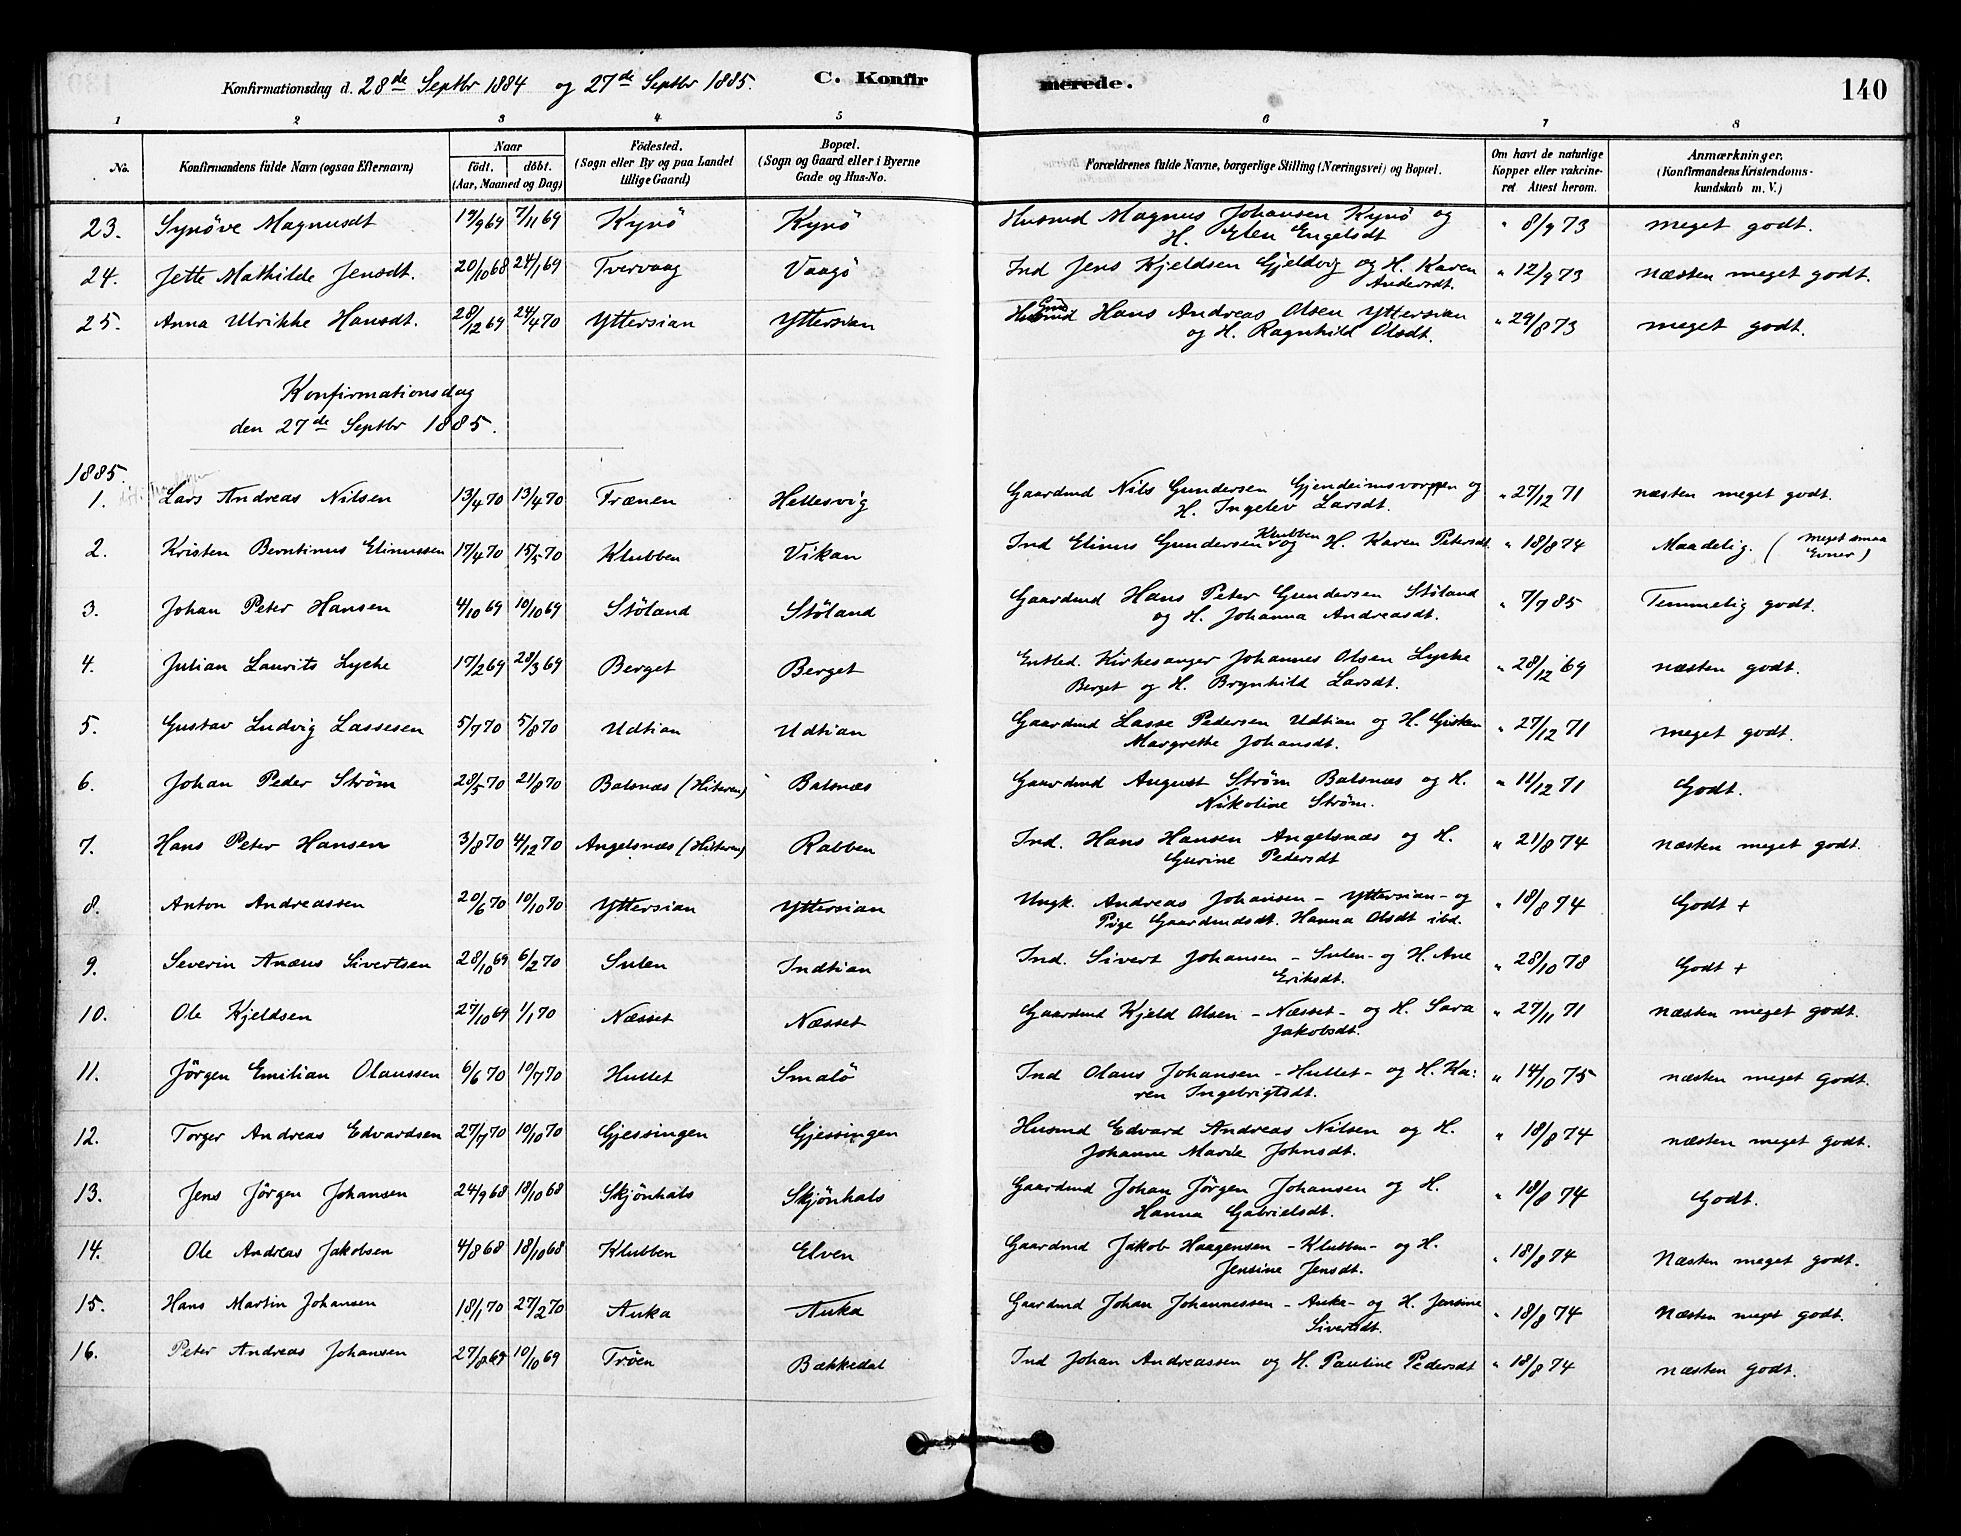 Konfirmationsdag d. 28de Septbr 1884 og 27de Septbr 1885. C. Konfir merede. 140
1 2 3 4 5 6 7 8
No. Konfirmandens fulde Navn (ogsaa Efternavn) Naar födt. döbt. (Aar, Maaned og Dag) Födested. (Sogn eller By og paa Landet tillige Gaard) Bopæl. (Sogn og Gaard eller i Byerne Gade og Hus-No. Forældrenes fulde Navne, borgerlige Stilling (Næringsvei) og Bopæl. Om havt de naturlige Kopper eller vakcineret Attest herom. Anmærkninger. (Konfirmandens Kristendomskundskab m. V.)
23. Synöve Magnusdt 19/9 69 7/11 69 Kynö Kynö Husmd Magnus Johansen Kynö og H. Elen Engelsdt " 8/9 73 meget godt.
24. Jette Mathilde Jensdt. 20/10 68 24/1 69 Tvervaag Vaagö Ind Jens Kjeldsen Gjeldvig og H. Karen Andersdt. " 12/9 73 næsten meget godt.
25. Anna Ulrikke Hansdt. 28/12 69 24/4 70 Yttersian Yttersian Hans Andreas Olsen Yttersian og H. Ragnhild Olsdt. " 29/8 73 meget godt.
Konfirmationsdag
den 27de Septbr 1885.
1885.
1. Lars Andreas Nilsen 13/4 70 13/4 70 Frænen Hellesvig Gaardmd Nils Gundersen Gjendeimsvorppen og H. Ingelev Larsdt. " 27/12 71 næsten meget godt.
2. Kristen Berntinus Elinussen 17/4 70 15/5 70 Klubben Vikan Ind Elinus Gundersen Klubben og H. Karen Petersdt " 18/8 74 Maadelig. (meget smaa Evner)
3. Johan Peter Hansen 4/10 69 10/10 69 Stöland Stöland Gaardmd Hans Peter Gundersen Stöland og H. Johanna Andreasdt. " 7/7 85 Temmelig godt.
4. Julian Laurits Lyche 17/2 69 28/3 69 Berget Berget Entled. Kirkesanger Johannes Olsen Lyche Berget og H. Brynhild Larsdt. " 28/12 69 næsten godt.
5. Gustav Ludvig Lassesen 5/7 70 5/8 70 Udtian Udtian Gaardmd Lasse Pedersen Udtian og H. Gisken Margrethe Johansdt. " 27/12 71 meget godt.
6. Johan Peder Ström 28/5 70 21/8 70 Balsnæs (Hiteren) Balsnæs Gaardmd August Ström Balsnæs og H. Nikoline Ström. " 11/12 71 Godt.
7. Hans Peter Hansen 3/8 70 4/12 70 Angelsnæs (Hiteren) Rabben Ind. Hans Hansen Angelsnæs og H. Gurine Pedersdt " 21/8 74 næsten meget godt.
8. Anton Andreassen 20/6 70 10/10 70 Yttersian Yttersian Ungk. Andreas Johansen - Yttersian - og Pige Gaardmdsdt. Hanna Olsdt ibd. " 18/8 74 Godt +
9. Severin Anæus Sivertsen 28/10 69 6/2 70 Sulen Indtian Ind. Sivert Johansen - Sulen - og H. Ane Eriksdt. " 28/10 78 Godt +
10. Ole Kjeldsen 27/10 69 1/1 70 Næsset Næsset Gaardmd Kjeld Olsen - Næsset - og H. Sara Jakobsdt. " 27/11 71 næsten meget godt.
11. Jörgen Emilian Olaussen 6/6 70 10/7 70 Hullet Smalö Ind Olaus Johansen - Hullet - og H. Ka: ren Ingebrigtsdt. " 14/10 75 næsten meget godt.
12. Torger Andreas Edvardsen 27/7 70 10/10 70 Gjessingen Gjessingen Husmd Edvard Andreas Nilsen og H. Johanne Marie Johnsdt. " 18/8 74 næsten meget godt.
13. Jens Jörgen Johansen 24/9 68 18/10 68 Skjönhals Skjönhals Gaardmd Johan Jörgen Johansen og H. Hanna Gabrielsdt. " 18/8 74 Godt.
14. Ole Andreas Jakobsen 4/8 68 18/10 68 Klubben Elven Gaardmd Jakob Haagensen - Klubben - og H. Jensine Jensdt. " 18/8 74 Næsten meget godt.
15. Hans Martin Johansen 18/1 70 27/2 70 Auka Auka Gaardmd Johan Johannessen - Auka - og H. Jensine Sivertsdt. " 18/8 74 Næsten meget godt.
16. Peter Andreas Johansen 27/8 69 10/10 69 Tröen Bækkedal Ind Johan Andreassen og H. Pauline Pedersdt " 18/8 74 næsten godt.